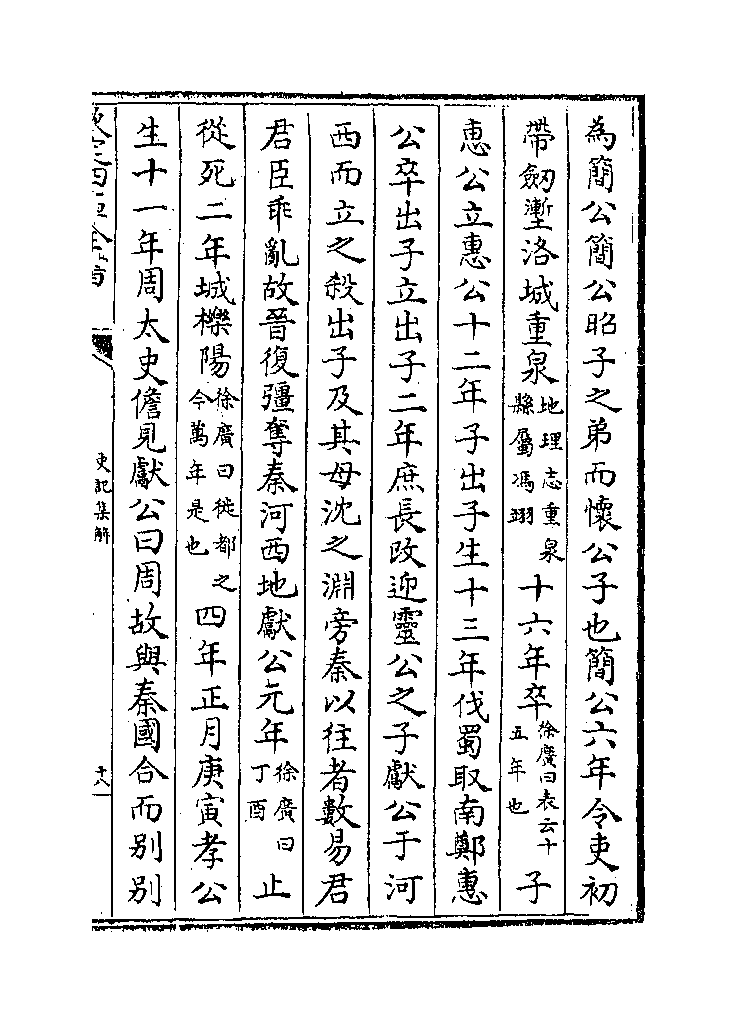 為簡公簡公昭子之弟而懷公子也簡公六年令吏初
帶劒壍洛城重泉地理志重泉縣屬馮翊十六年卒徐廣曰表云十五年也子
惠公立惠公十二年子出子生十三年伐蜀取南鄭惠
公卒出子立出子二年庶長改迎靈公之子獻公于河
西而立之殺出子及其母沈之淵旁秦以往者數易君
君臣乖亂故晉復彊奪秦河西地獻公元年徐廣曰丁酉止
從死二年城櫟陽徐廣曰徙都之今萬年是也四年正月庚寅孝公
生十一年周太史儋見獻公曰周故與秦國合而別別
欽定四庫全書
史記集解
十八